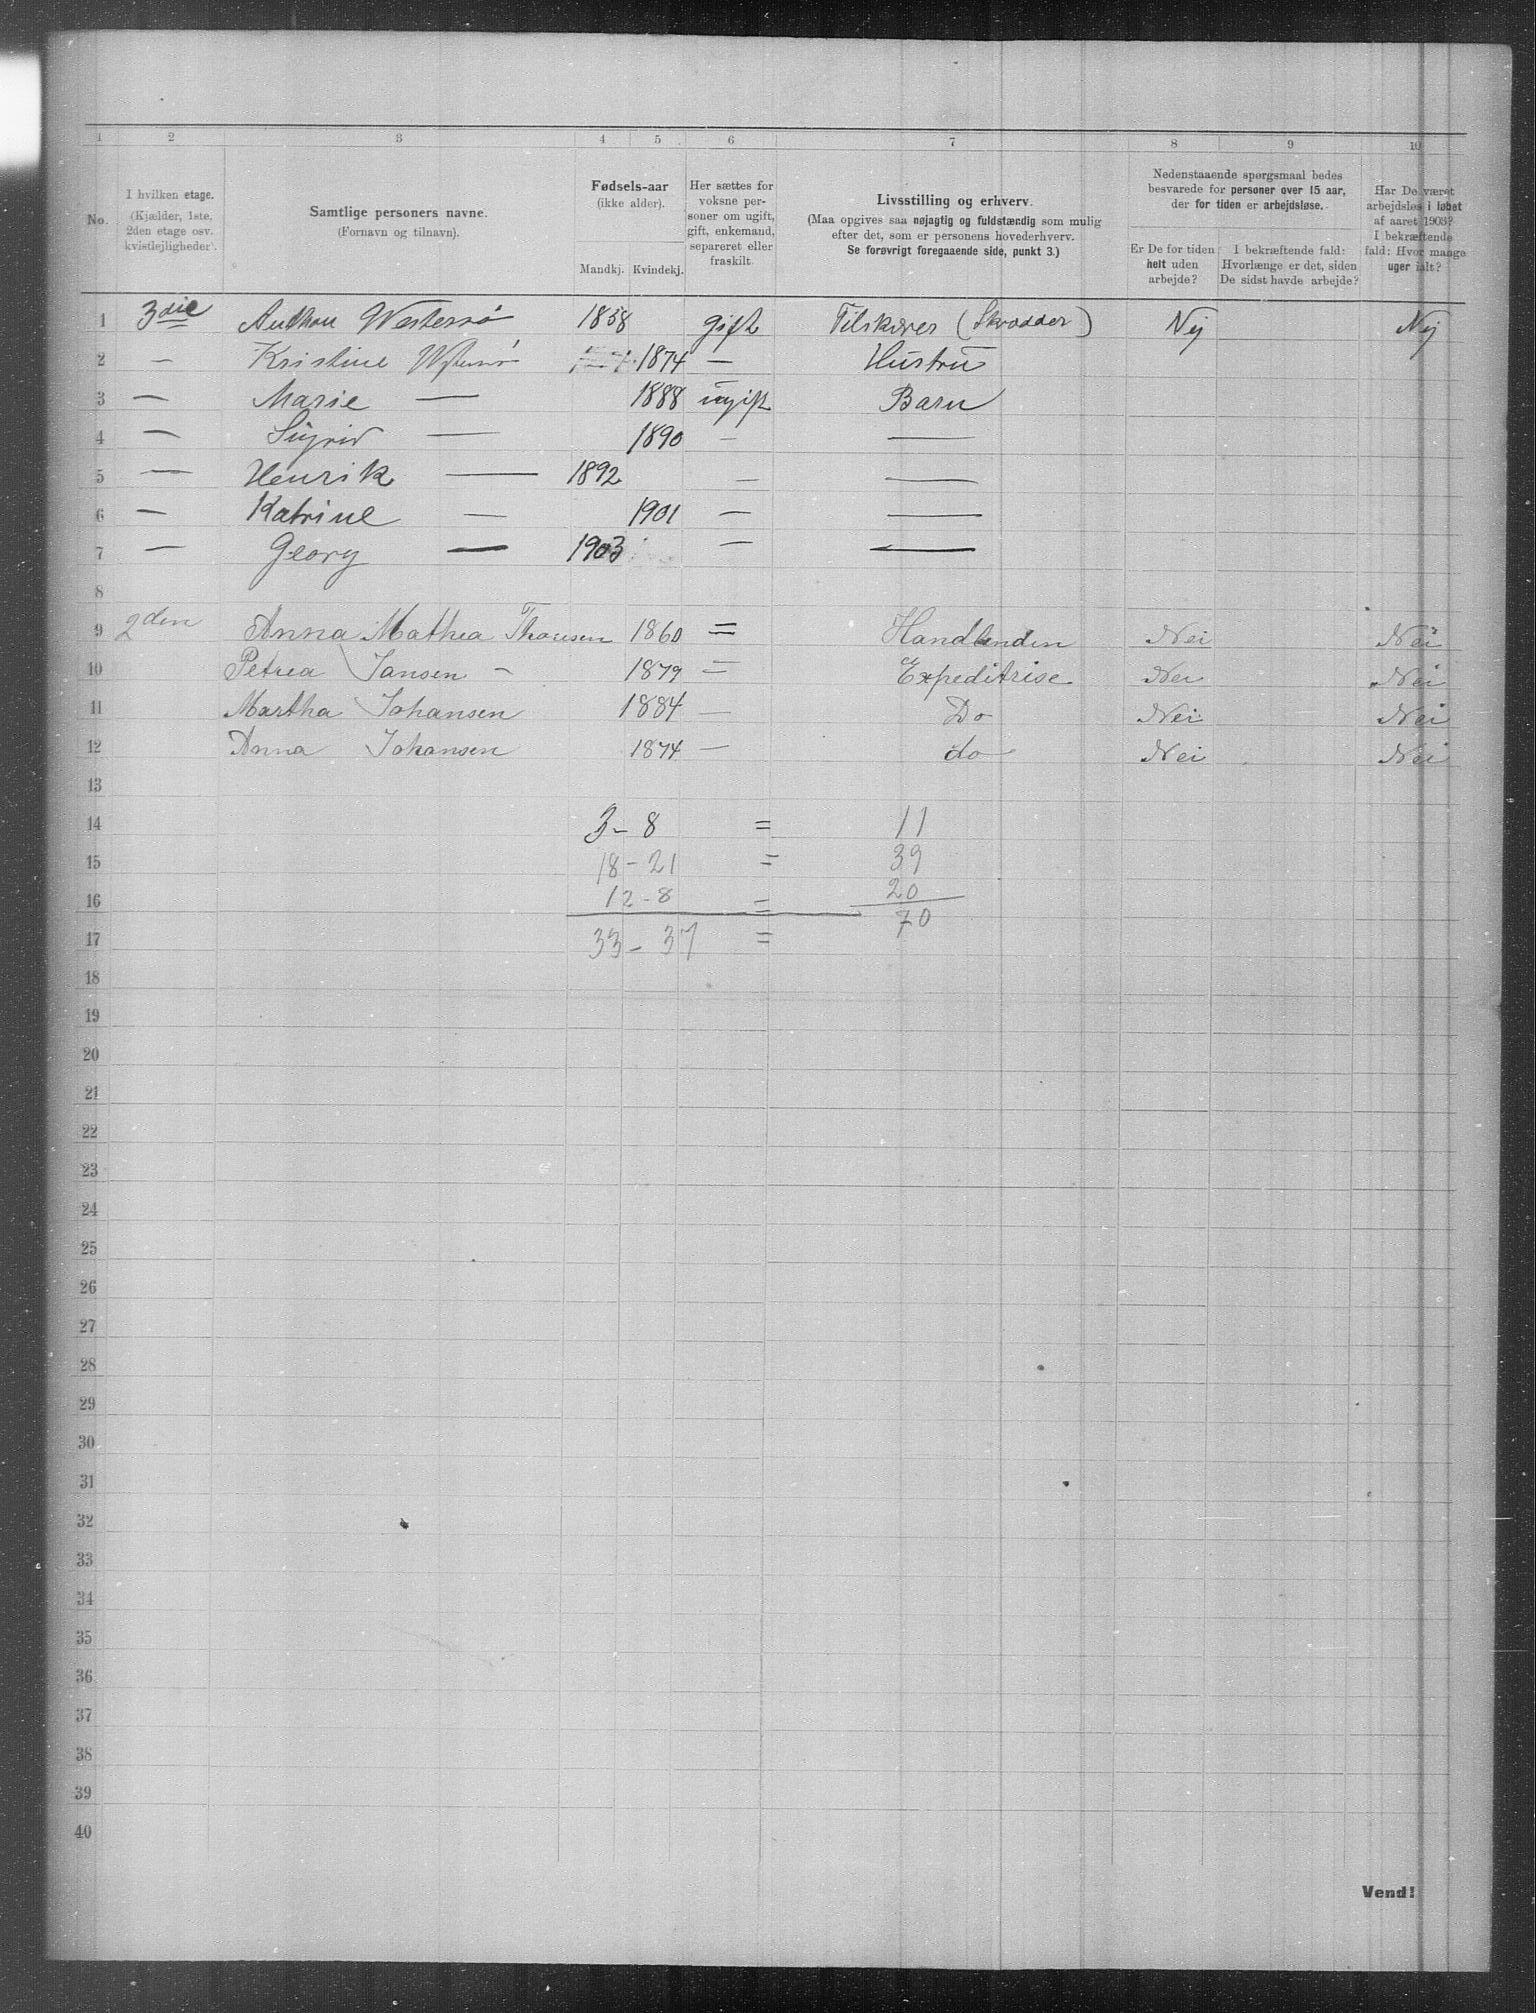 1 2 3 4 5 6 7 8 9 10
No. I hvilken etage. (Kjælder, 1ste, 2den etage osv. kvistlejligheder).
Samtlige personers navne. (Fornavn og tilnavn).
Fødsels-aar (ikke alder). Mandkj. Kvindekj.
Her sættes for voksne personer om ugift, gift, enkemand, separeret eller fraskilt.
Livsstilling og erhverv.
(Maa opgives saa nøjagtig og fuldstændig som mulig efter det, som er personens hovederhverv.
Se forøvrigt foregaaende side, punkt 3.)
Nedenstaaende spørgsmaal bedes besvarede for personer over 15 aar, der for tiden er arbejdsløse.
Er De for tiden helt uden arbejde?
I bekræftende fald: Hvorlænge er det, siden De sidst havde arbejde?
Har De været arbejdsløs i løbet af aaret 1903? I bekræftende fald: Hvor mange uger ialt?
1 3die Anthon Westersø 1858 gift Tilskærer (Skrædder) Nej Nej
2 — Kristine Westersø 1874 — Hustru
3 — Marie — 1888 ugift Barn
4 — Sigrid — 1890 — —
5 — Henrik — 1892 — —
6 — Katrine — 1901 — —
7 — Georg — 1903 — —
8
9 2den Anna Mathea Thonsen 1860 = Handlende Nei Nei
10 Petrea Jansen - 1879 = Expeditrise Nei Nei
11 Martha Johansen 1884 — Do Nei Nei
12 Anna Johansen 1874 — do Nei Nei
13
14 3 - 8 = 11
15 18 - 21 = 39
16 12 - 8 = 20
17 33 - 37 = 70
18
19
20
21
22
23
24
25
26
27
28
29
30
31
32
33
34
35
36
37
38
39
40
Vend!